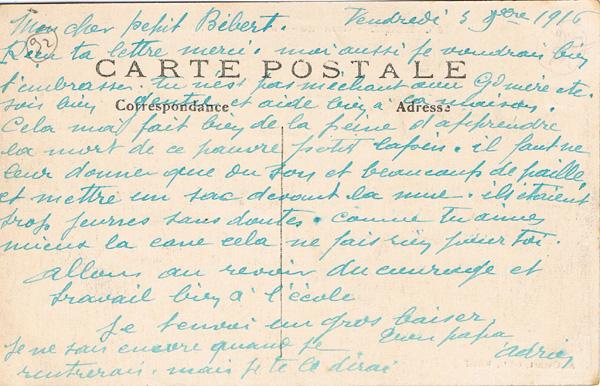 Mon cher petit Bébert. Vendredi 5 1916
92
Reçu ta lettre merci. moi aussi je voudrais bien
CARTE POSTALE
t'embrasser. tu n'est pas méchant avec Gd mère etc.
sois bien et aide bien à la maison.
Correspondance Adresse
Cela m'a fait bien de la peine d'apprendre
la mort de ce pauvre petit lapin. il faut ne
leur donner que du son et beaucoup de paille
et mettre un sac devant la nuit. ils étaient
trop jeunes sans doute. comme tu aimes
mieux la cane cela ne fais rien pour toi.
allons au revoir du courage et
travail bien à l'école
Je t'envoi un gros baiser
Ton papa
Adrien
Je ne sais encore quand je
rentrerai. mais je te le dirai